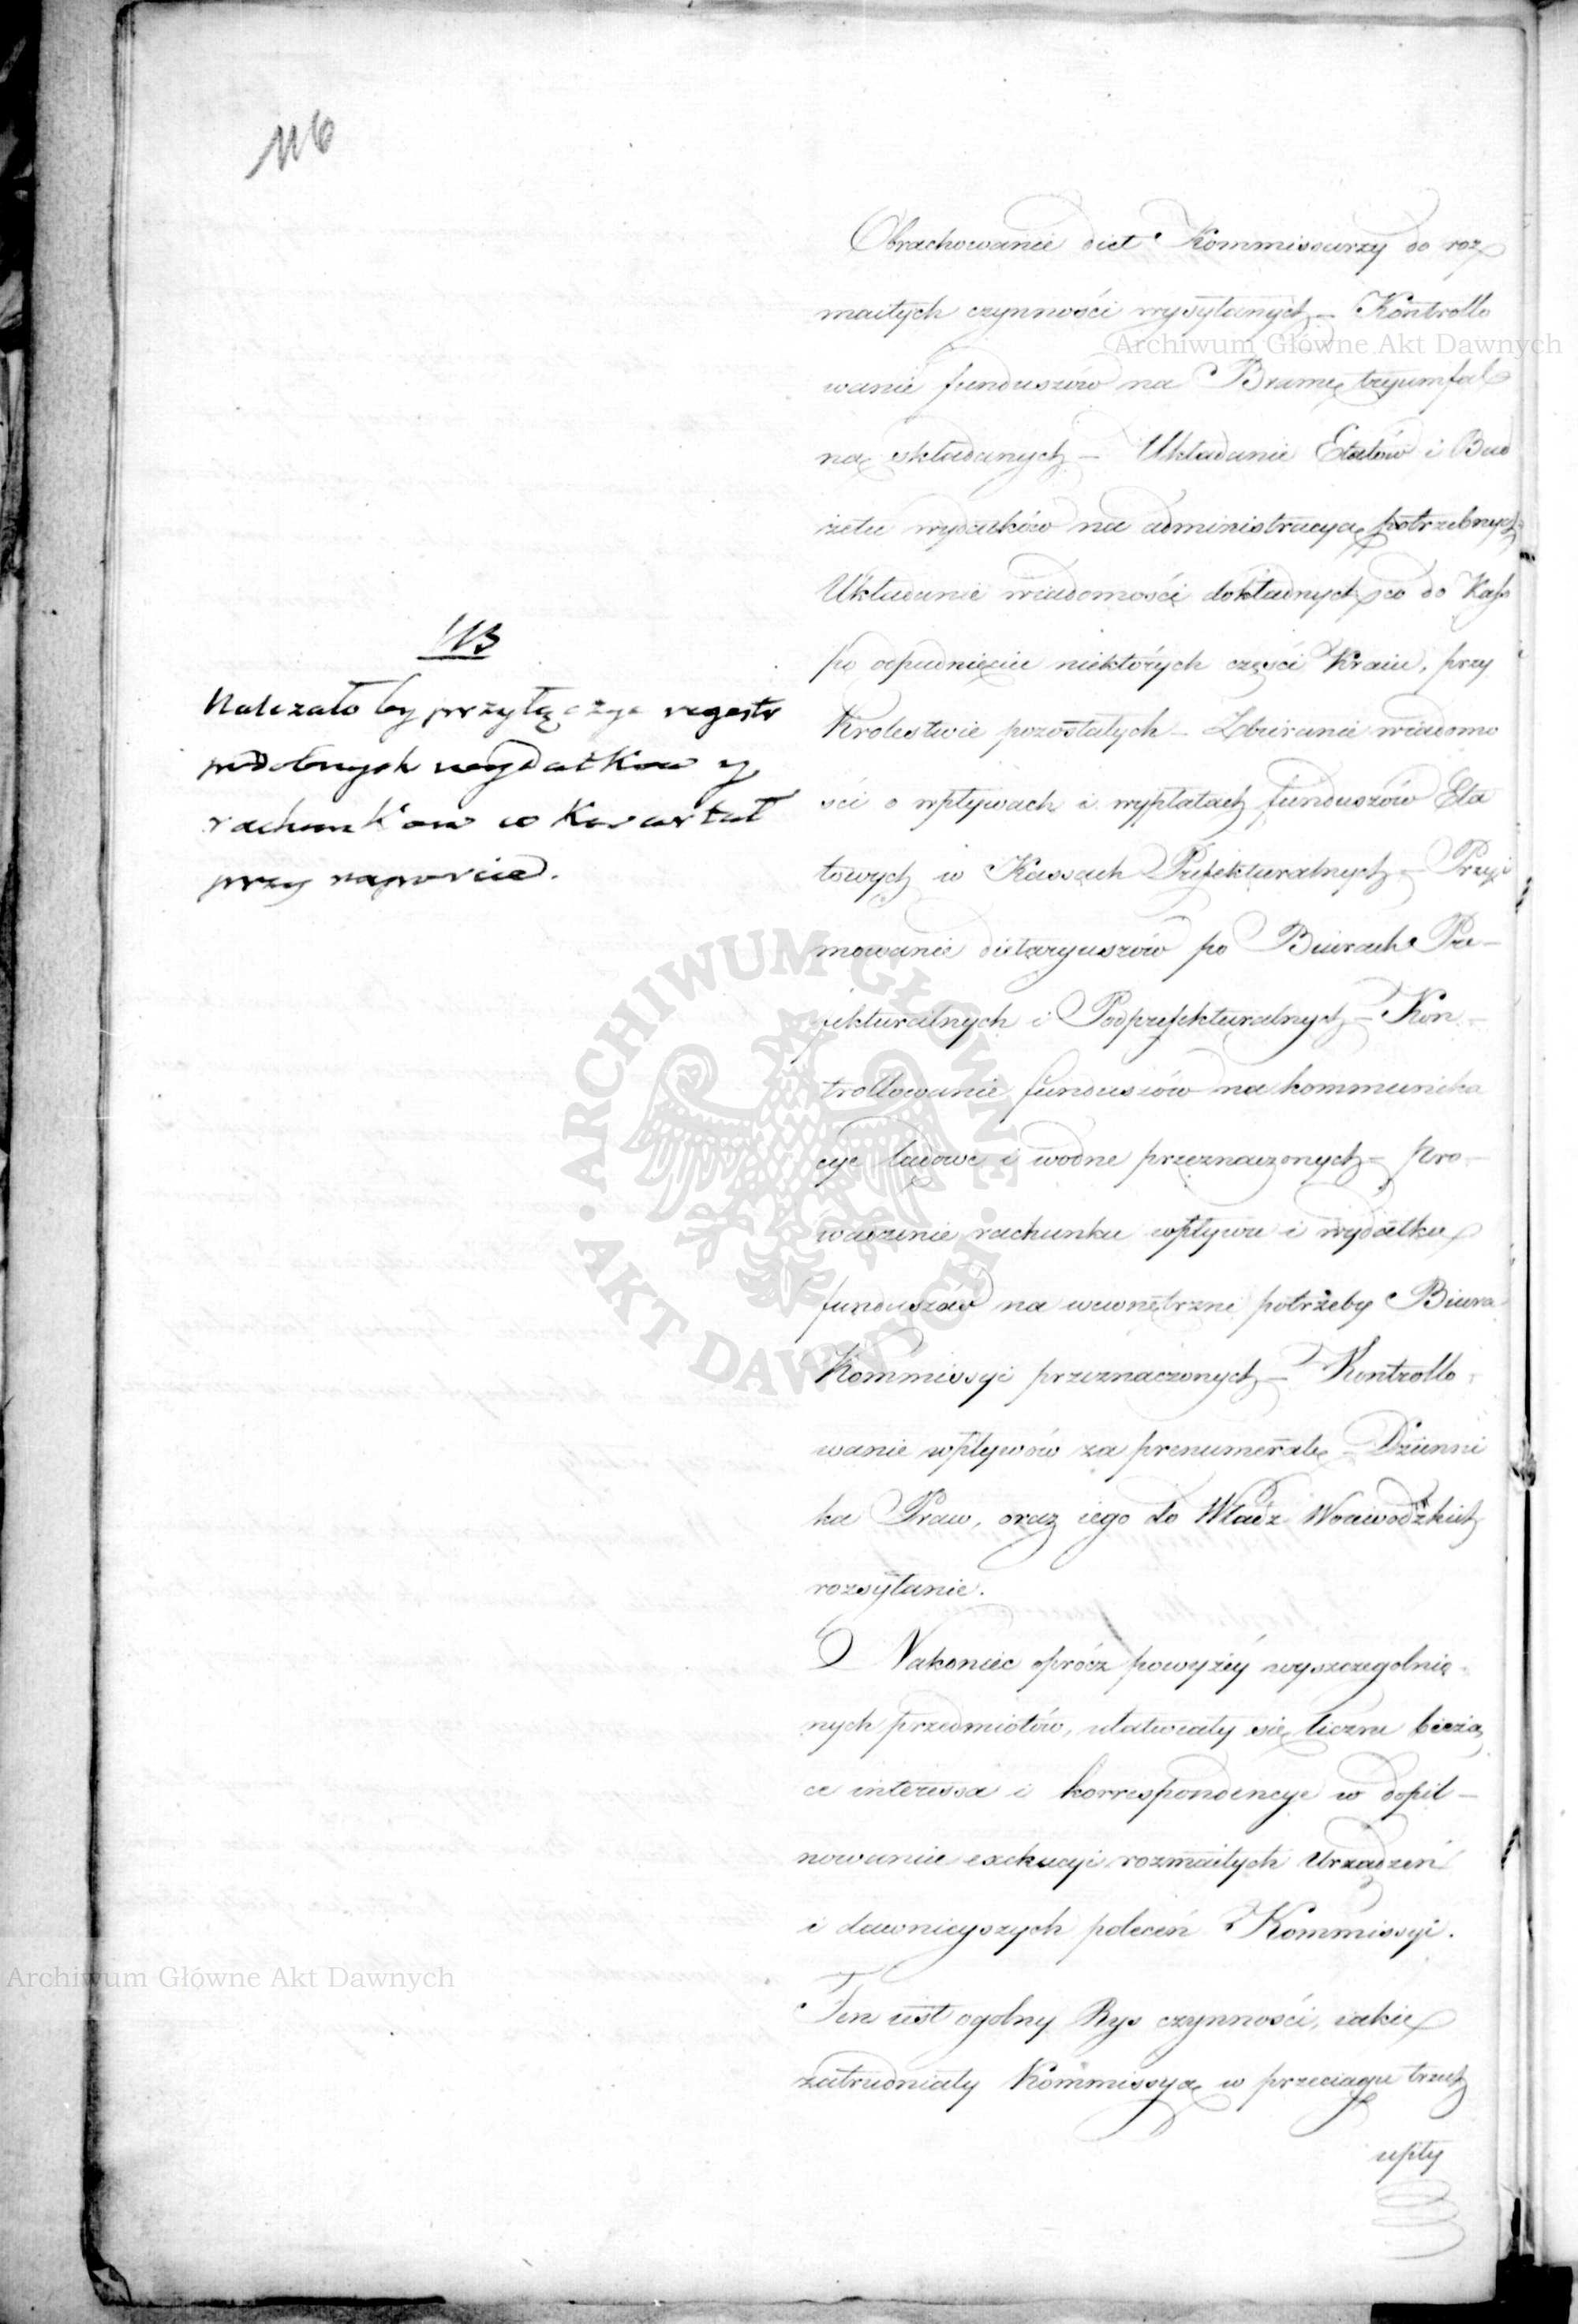 116
Obrachowanie diet Kommissarzy do roz
maitych czynności wysyłanych – Kontrollo
wanie funduszów na Bramę tryumfal
ną składanych – Układanie Etatów i Bud
żetu wydatków na administracyą potrzebnych
Układanie wiadomości dokładnych co do Kass
po odpadnięciu niektórych części Kraiu, przy
Krolestwie pozostałych – Zbieranie wiadomo
ści o wpływach i wypłatach funduszów Eta
towych w Kassach Prefekturalnych – Przyi
mowanie dietaryuszów po Biurach Pre–
fekturalnych i Podprefekturalnych – Kon–
trollowanie funduszów na kommunika
cye lądowe i wodne przeznaczonych – pro–
wadzenie rachunku wpływu i wydatku
funduszów na wewnętrzne potrzeby Biura
Kommissyi przeznaczonych – Kontrollo–
wanie wpływów za prenumeratę Dzienni
ka Praw, oraz iego do Władz Woiewodzkich
rozsyłanie.
Nakoniec oprócz powyżéy wyszczegolnio
nych przedmiotów, ułatwiały się liczne bieżą
ce interessa i korrespondencye w dopil–
nowaniu exekucyi rozmaitych Urządzeń
i dawnieyszych poleceń Kommissyi.
Ten iest ogolny Rys czynności, iakie
zatrudniały Kommissyą w przeciągu trzech
upły
NB
Należało by przyłączyć regestr
podobnych wydatkow y
rachunkow co Kwartał
przy raporcie.
Archiwum Główne Akt Dawnych
ARCHIWUM GŁÓWNE · AKT DAWNYCH ·
Archiwum Główne Akt Dawnych